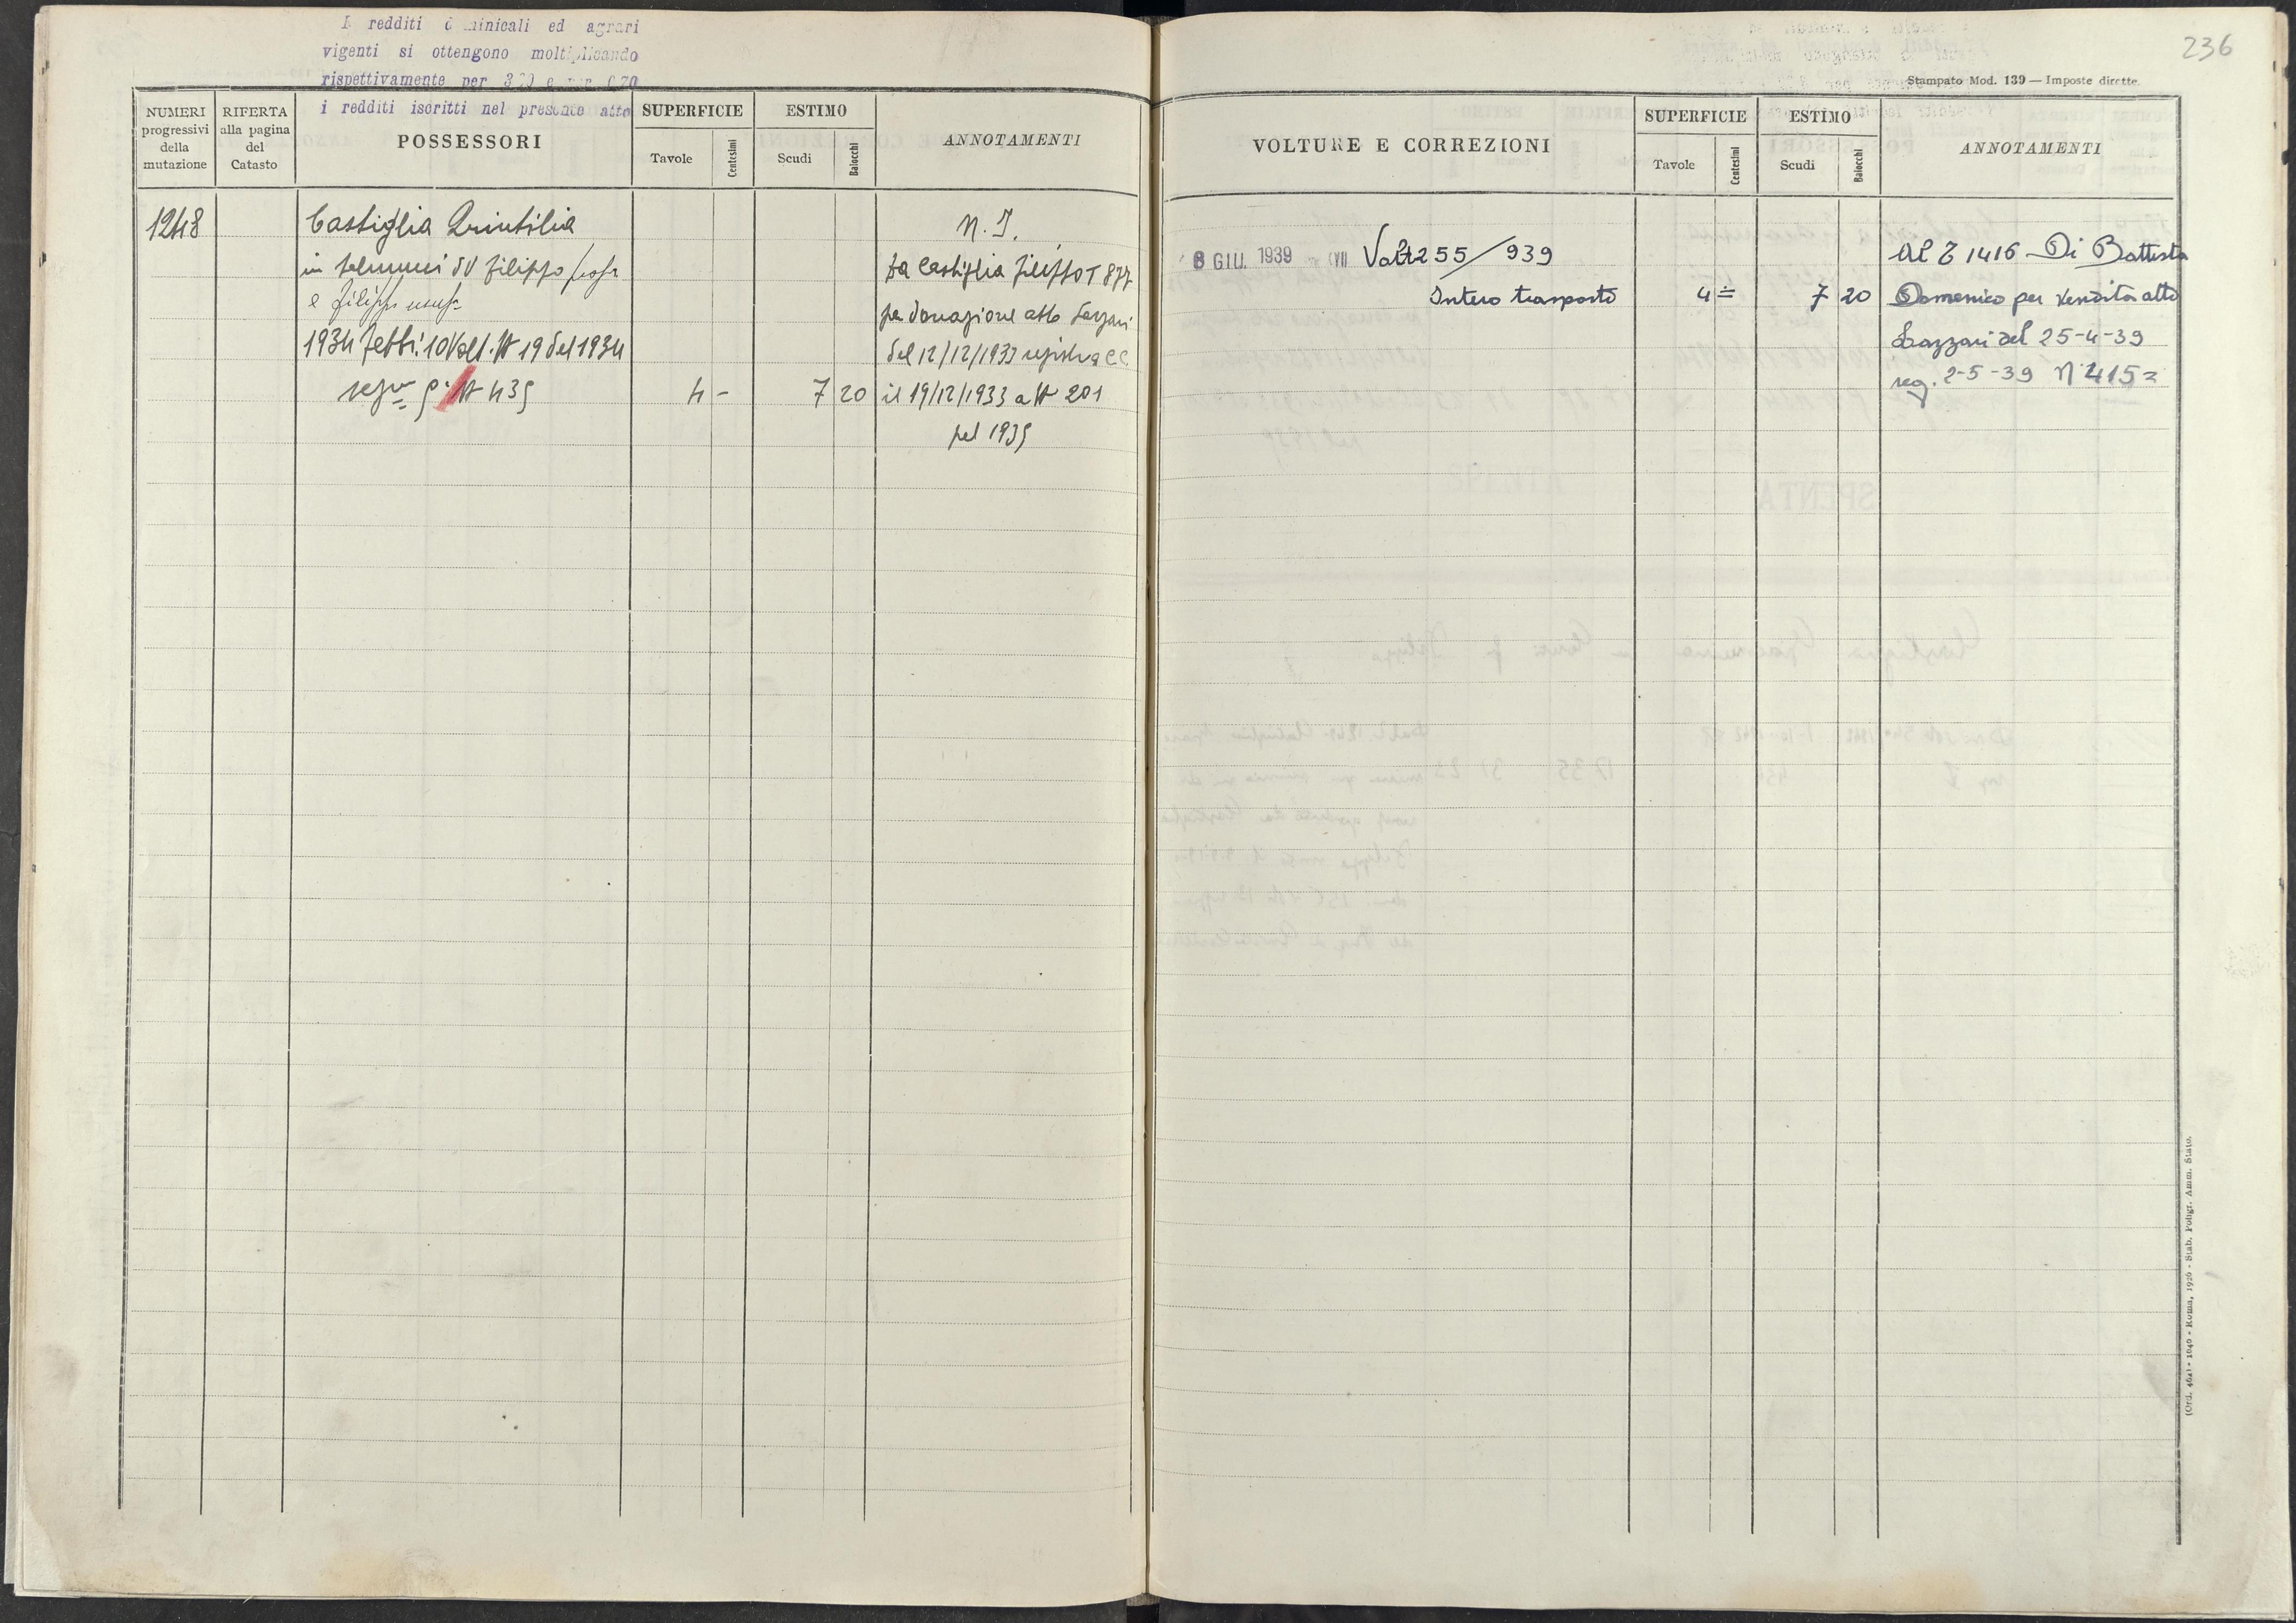 I redditi dominicali ed agrari
vigenti si ottengono moltiplicando
rispettivamente per
i redditi iscritti nel presente atto
NUMERI progressivi della mutazione
RIFERTA alla pagina del Catasto
POSSESSORI
SUPERFICIE
Tavole
Centesimi
ESTIMO
Scudi
Baiocchi
ANNOTAMENTI
1248
Castiglia Quintilia
in di Filippo
e Filippo
1934 Febb. 10 Volt. N 19 del 1934
N 435
4 -
7 20
N. I.
Da Castiglia Filippo T 877
per donazione atto Lazzari
del 12/12/1933
il 19/12/1933 a N 201
pel 1935
236
Stampato Mod. 139 — Imposte dirette.
VOLTURE E CORREZIONI
SUPERFICIE
Tavole
Centesimi
ESTIMO
Scudi
Baiocchi
ANNOTAMENTI
8 GIU. 1939 XVII Volt 255/939
Intero trasporto
4 =
7 20
Al T 1416 Di Battista
Domenico per vendita atto
Lazzari del 25-4-39
reg. 2-5-39 N 415=
1640 - Roma, 1926 - Stab. Poligr. Amm. Stato.